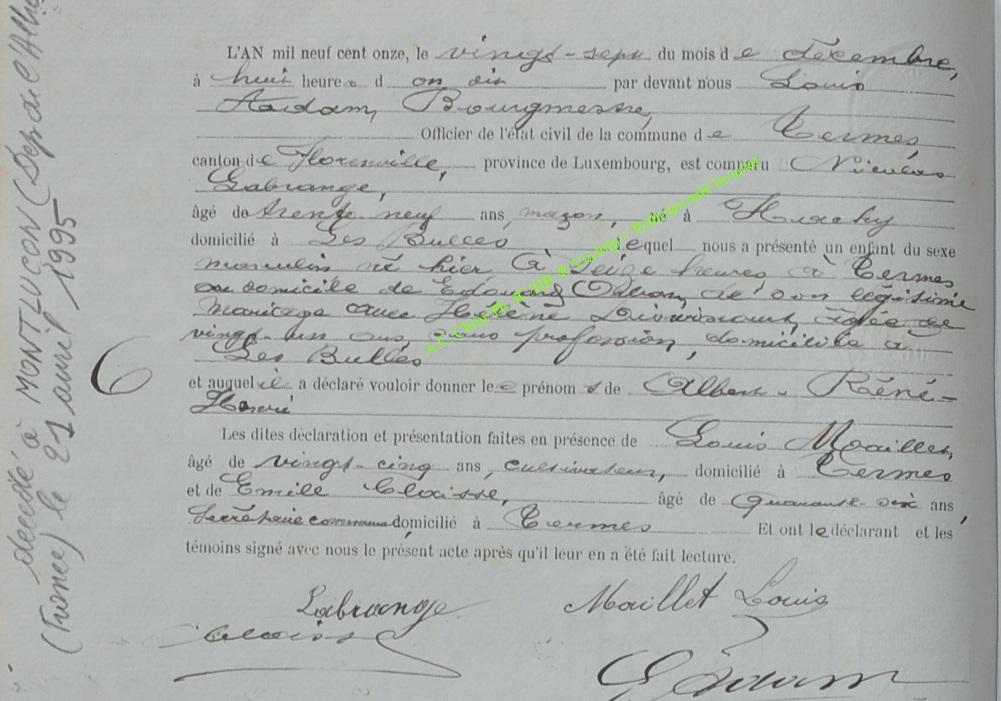 décédé à MONTLUCON (Dép. de l'Allier
(France) le 21 avril 1995
L'AN mil neuf cent onze, le vingt-sept du mois de décembre,
à huit heures d par devant nous Louis
Bourgmestre,
Officier de l'état civil de la commune de Termes,
canton de Florenville, province de Luxembourg, est comparu Nicolas
Labrange,
âgé de trente neuf ans, maçon, né à
domicilié à Les Bulles lequel nous a présenté un enfant du sexe
masculin né hier à seize heures à Termes
au domicile de Edouard de son légitime
mariage avec Hélène âgée de
vingt un ans, sans profession, domiciliée à
Les Bulles
et auquel il a déclaré vouloir donner les prénoms de Albert - Réné -
Honoré
Les dites déclaration et présentation faites en présence de Louis Maillet,
âgé de vingt-cinq ans, cultivateur, domicilié à Termes
et de Emile Claisse, âgé de quarante six ans,
Secrétaire communal domicilié à Termes Et ont le déclarant et les
témoins signé avec nous le présent acte après qu'il leur en a été fait lecture.
6
Labrange Maillet Louis